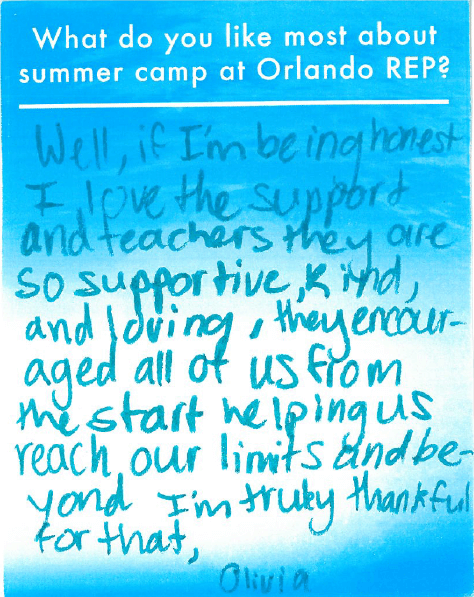 What do you like most about
summer camp at Orlando REP?
Well, if I'm being honest
I love the support
and teachers they are
so supportive, kind,
and loving, they encour-
aged all of us from
the start helping us
reach our limits and be-
yond I'm truly thankful
for that,
Olivia